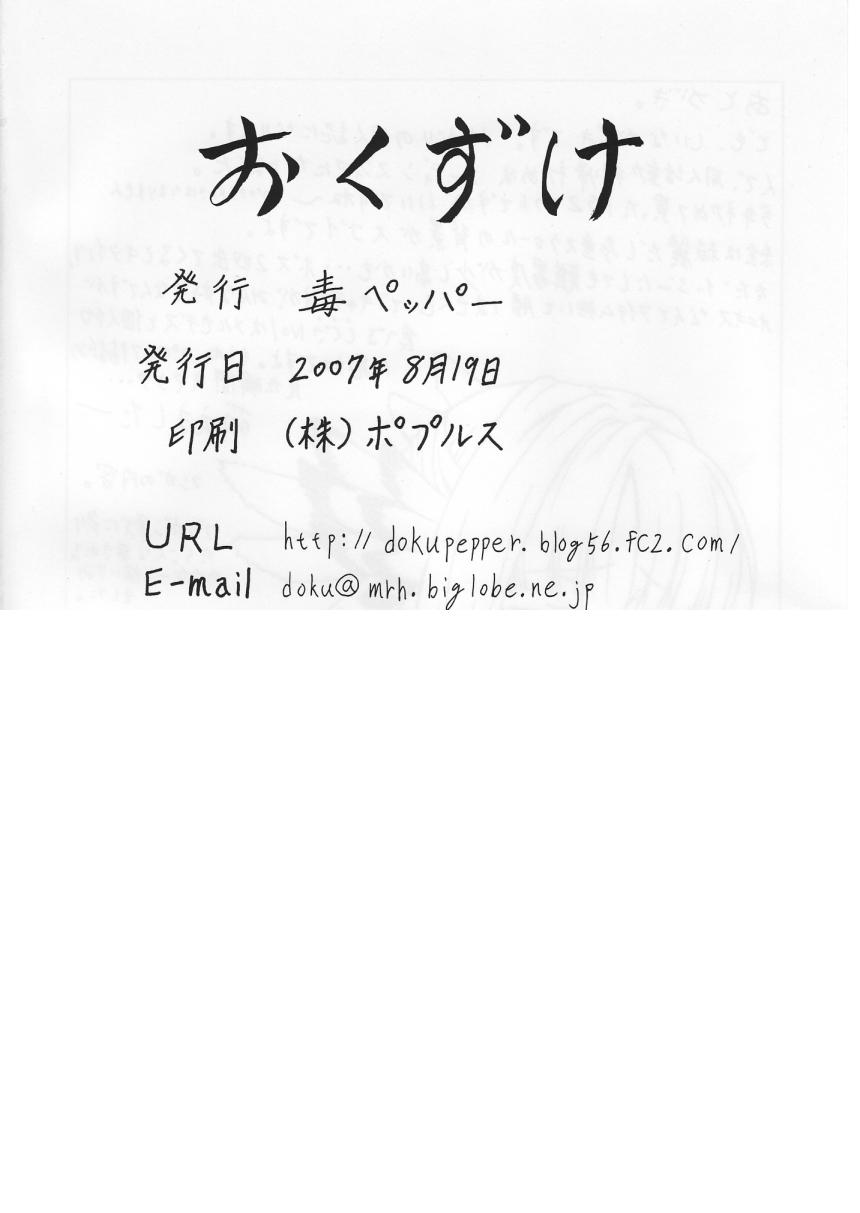 おくずけ
発行 毒ペッパー
発行日 2007年8月19日
印刷 （株）ポプルス
URL http://dokupepper.blog56.fc2.com/
E-mail doku@mrh.biglobe.ne.jp